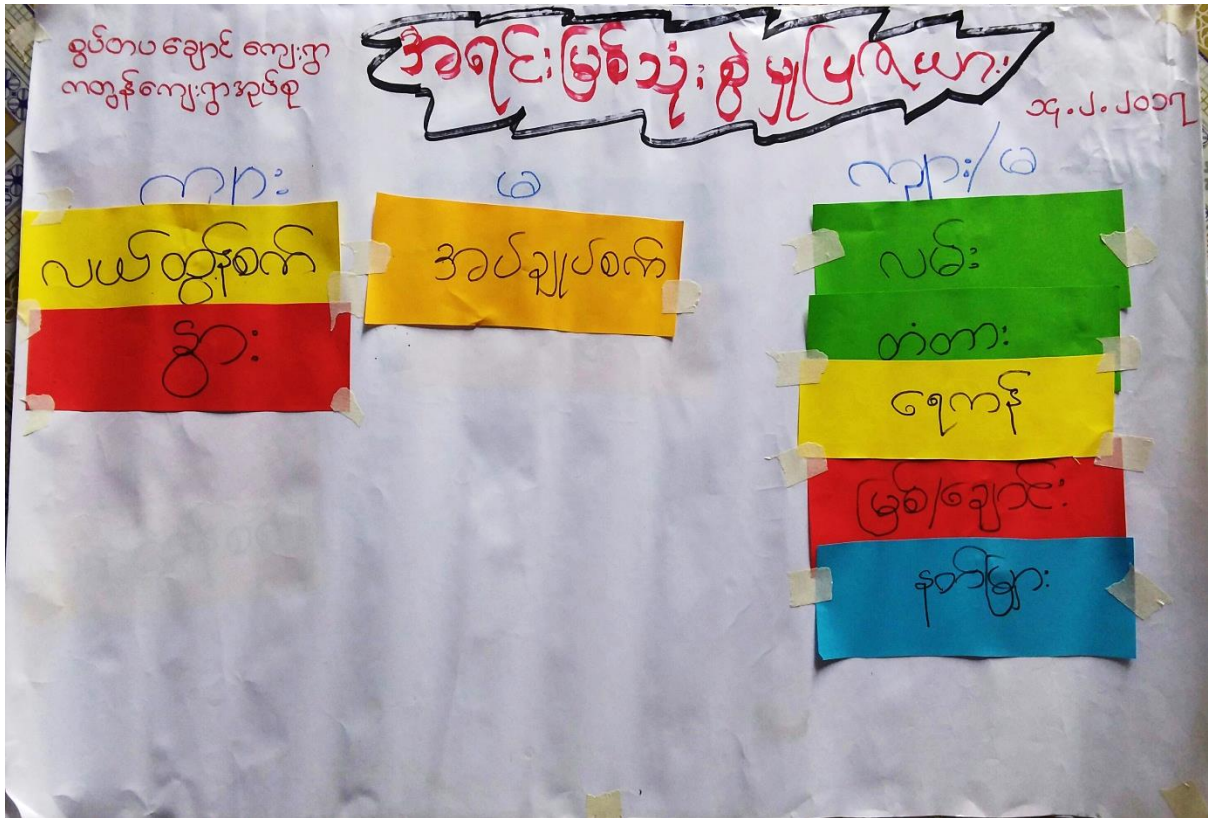 စွပ်တပချောင် ကျေးရွာ
ကတွန်ကျေးရွာအုပ်စု
အရင်းမြစ်သုံးစွဲမှုပြဇယား
၁၄.၂.၂၀၁၇
ကျား
မ
ကျား/မ
လယ်ထွန်စက်
နွား
အပ်ချုပ်စက်
လမ်း
တံတား
ရေကန်
မြစ်/ချောင်း
နတ်မြှား